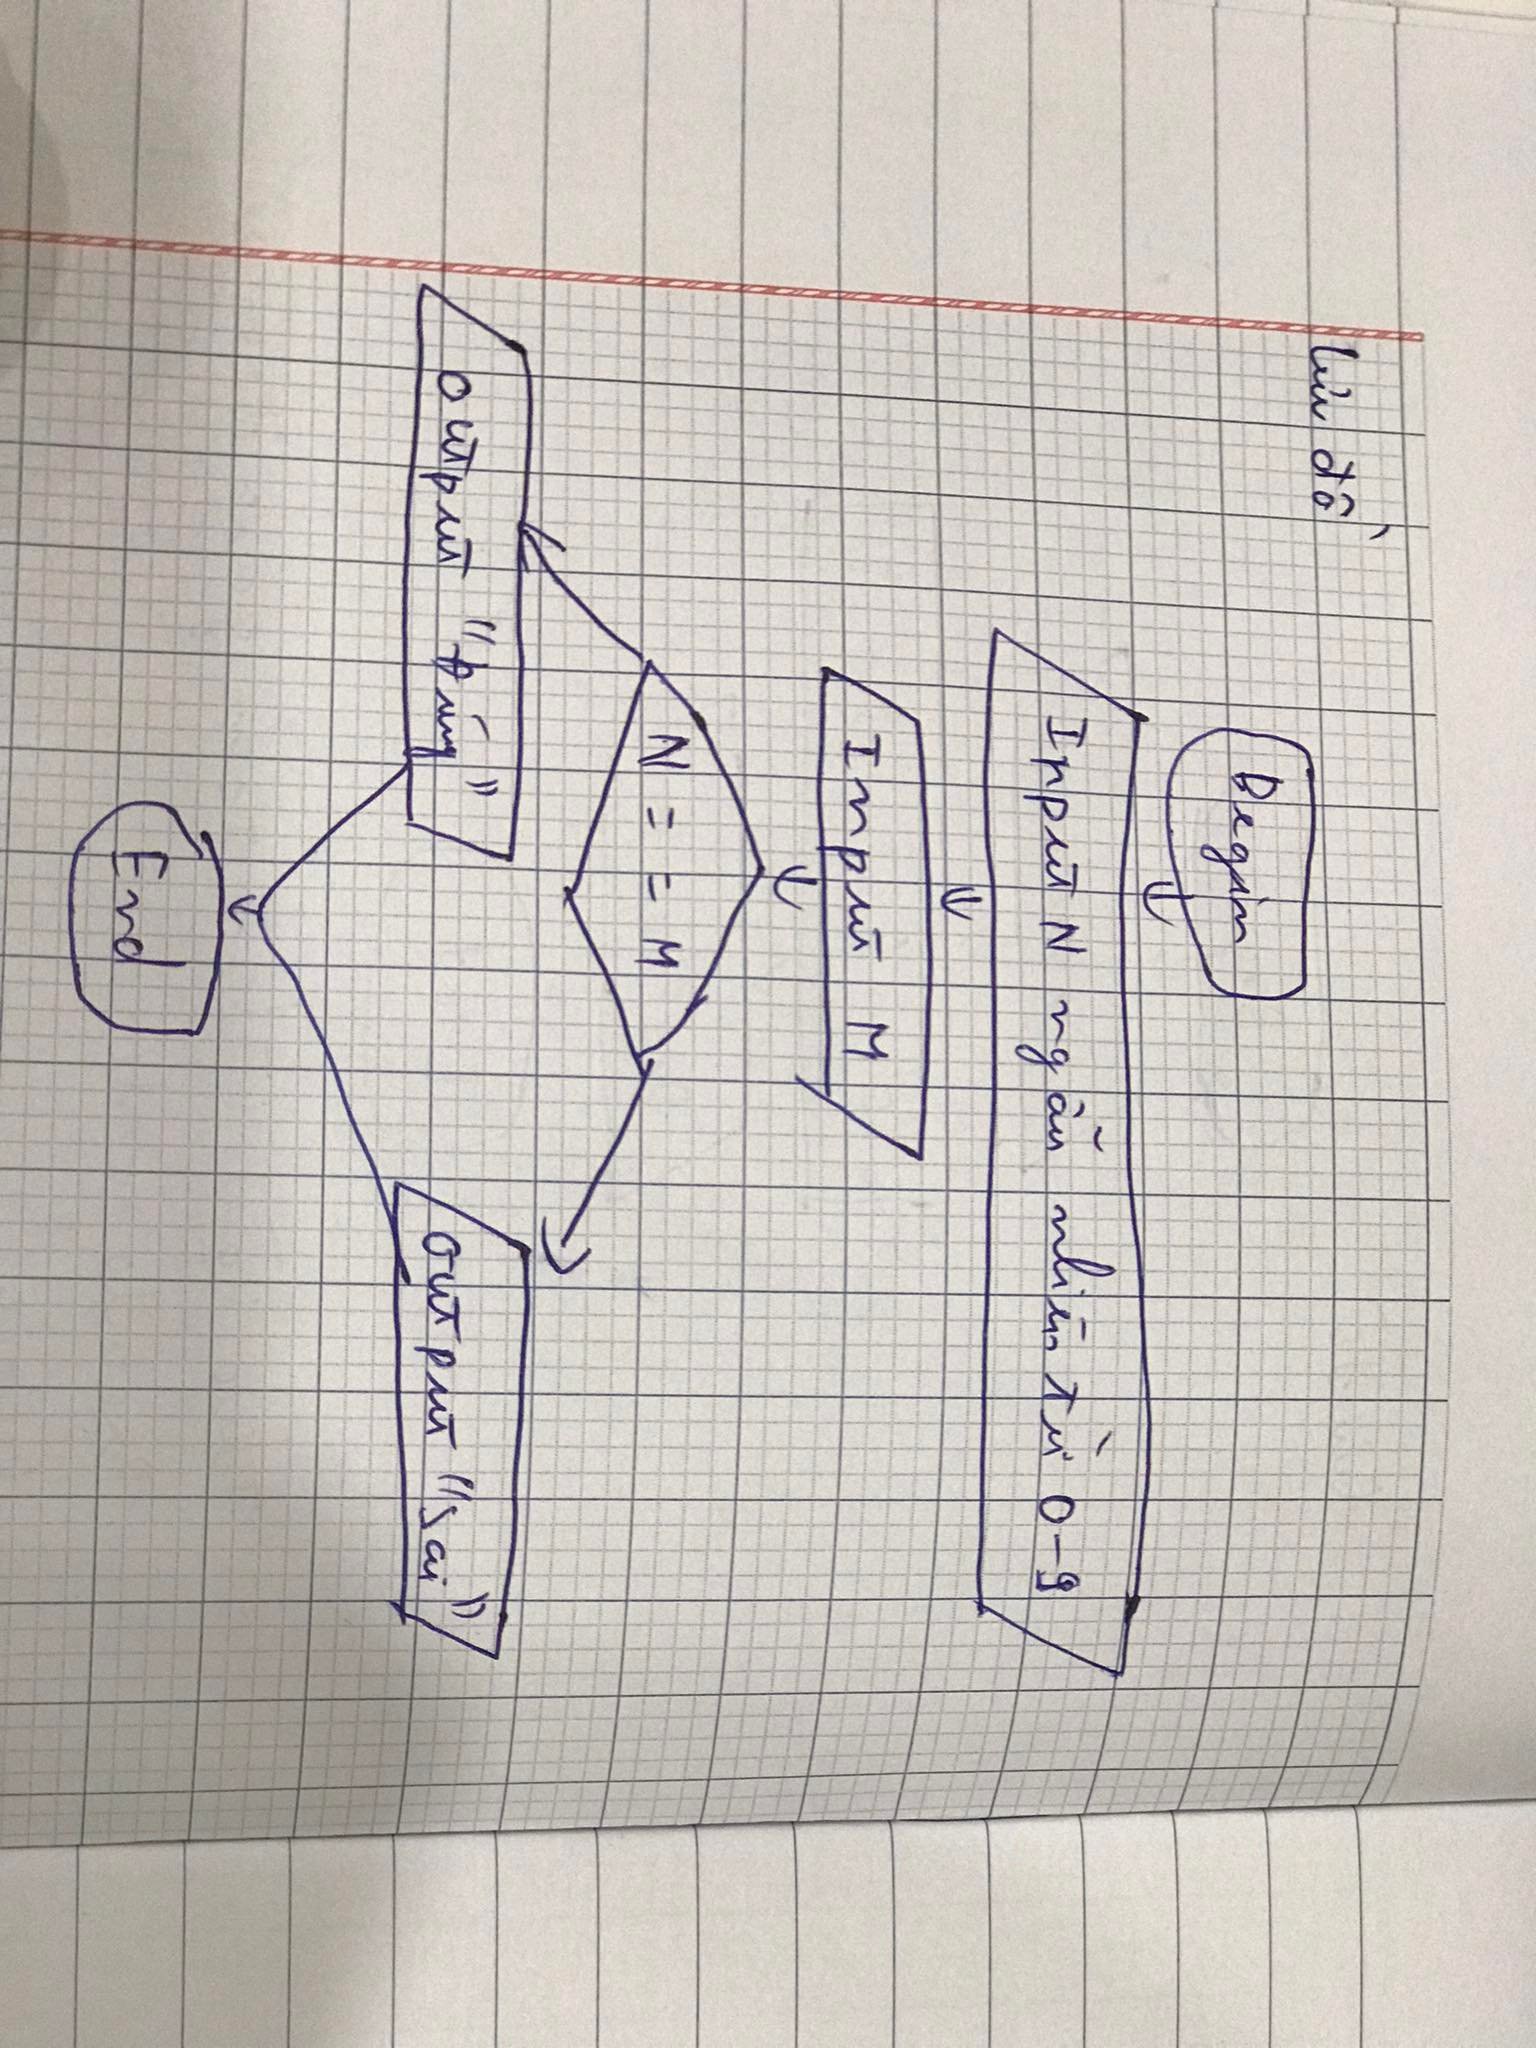 lưu đồ
Begin
Input N ngẫu nhiên từ 0-9
Input M
N == M
output "đúng"
output "sai"
End